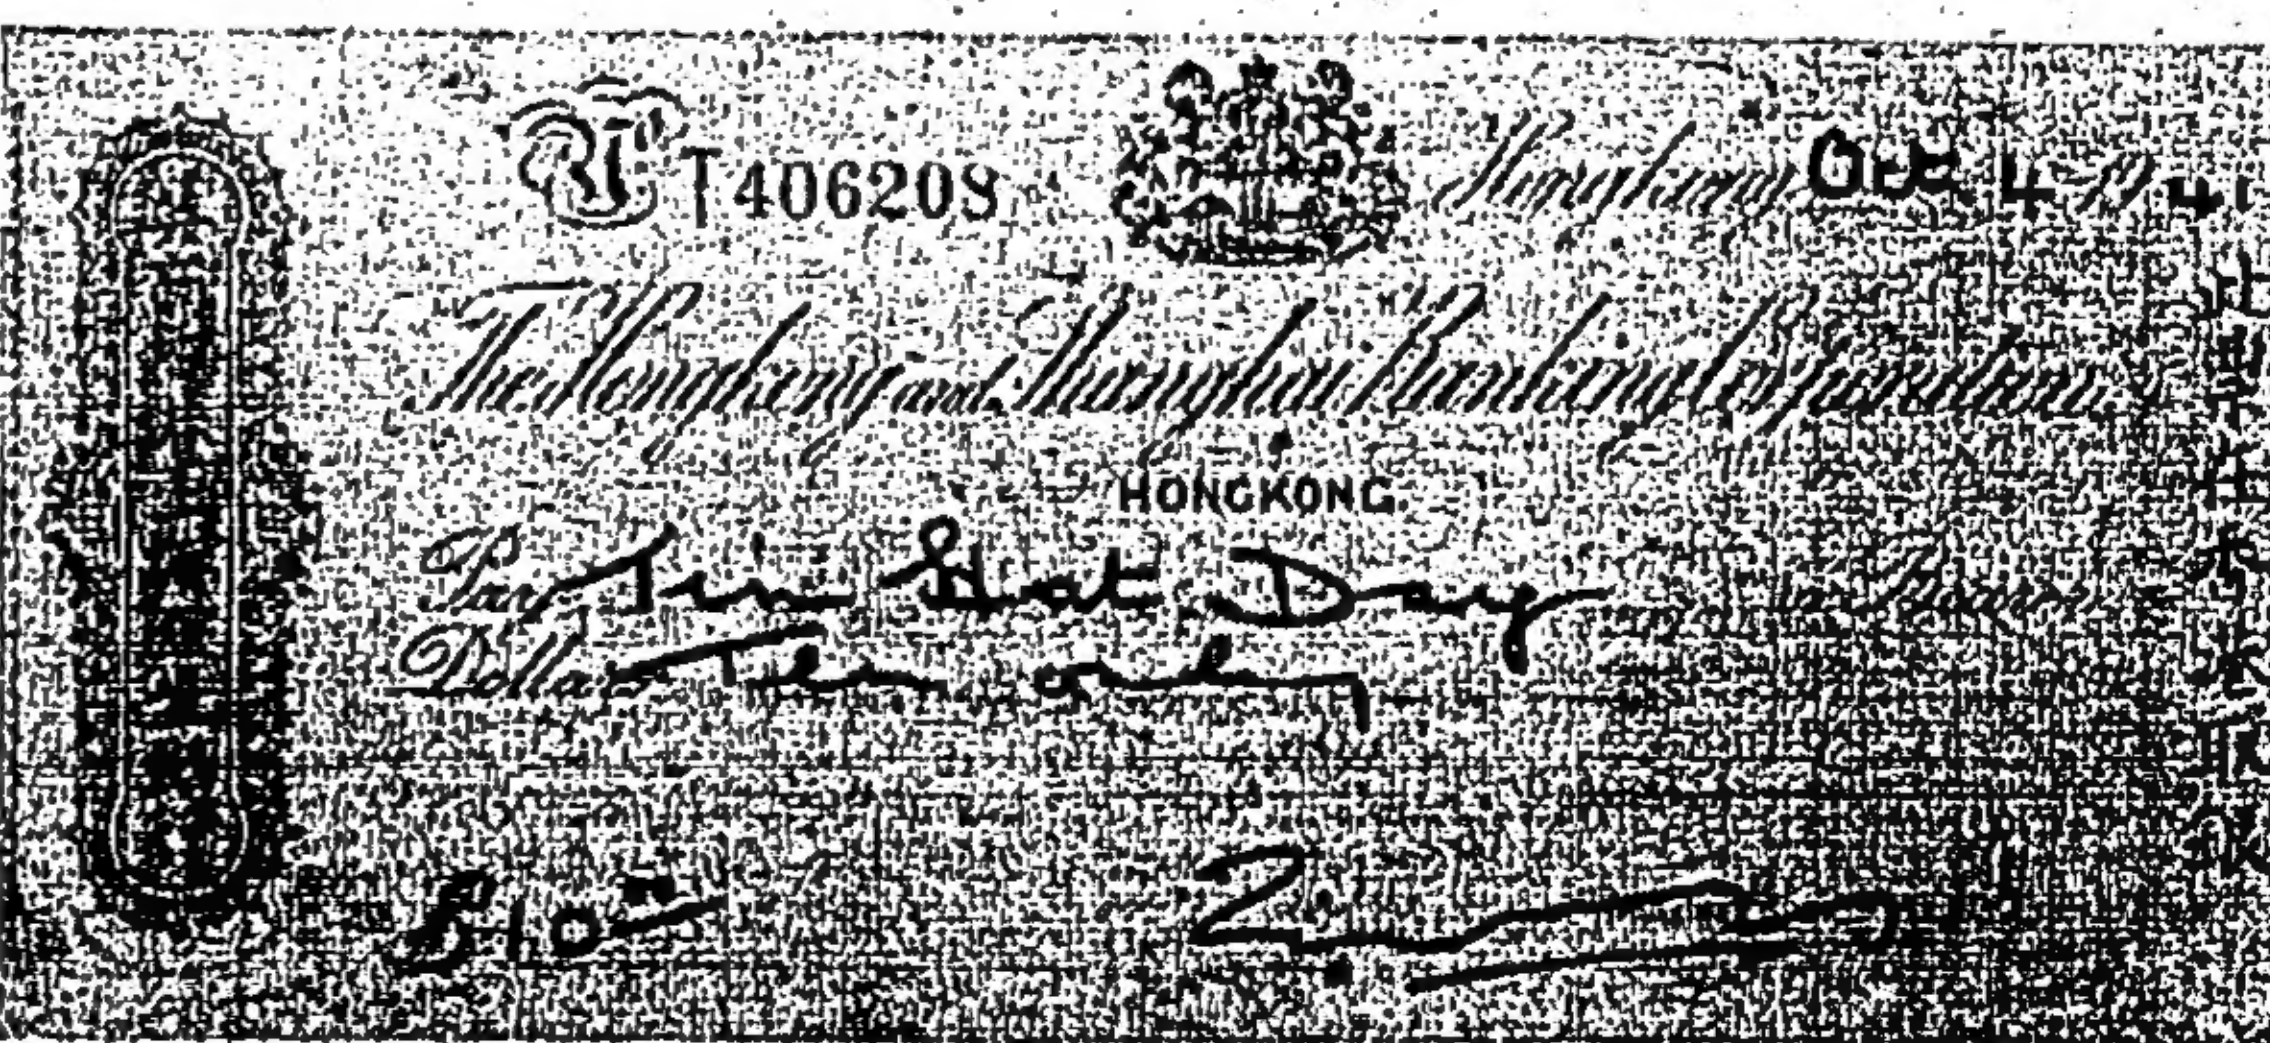 T406208
Hongkong, Oct 4 1941
The Hongkong and Shanghai Banking Corporation
HONGKONG
Pay Tin Hat Day or Bearer
Dollars Ten only
$10